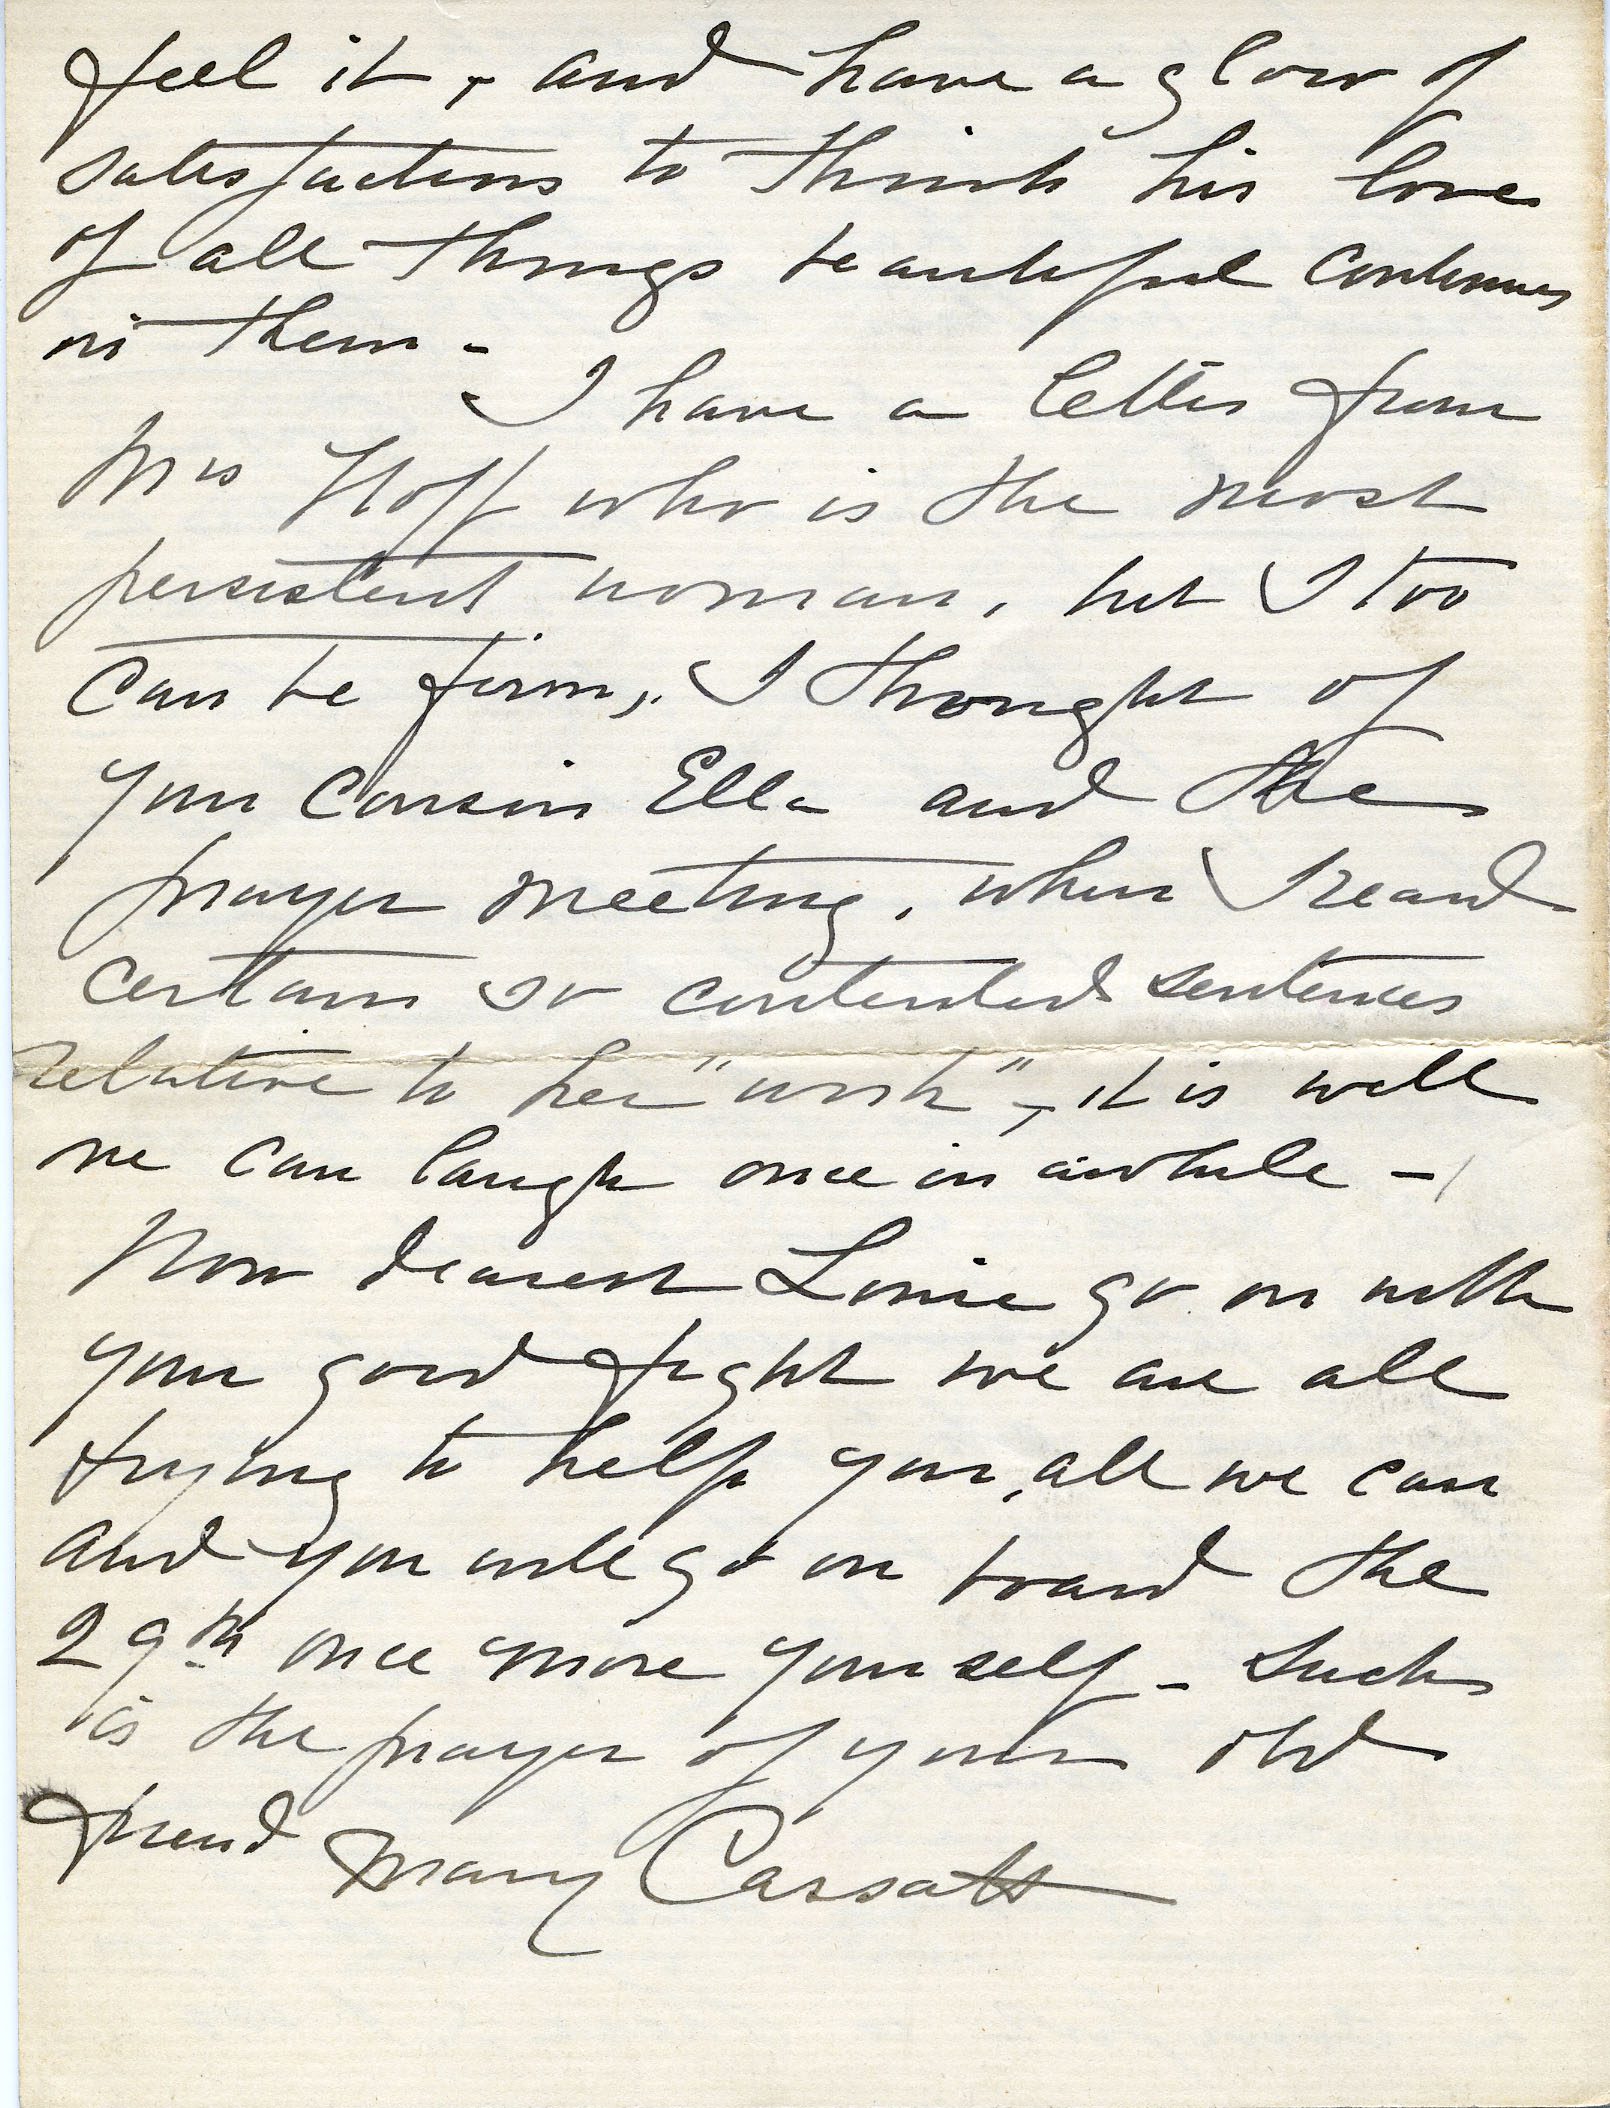 feel it, and have a glow of
satisfaction to think his love
of all things beautiful continues
in them -
I have a letter from
Mrs Hoff who is the most
persistent woman, but I too
can be firm, I thought of
your cousin Ella and the
prayer meeting, when I read
certain so contented sentences
relative to her "work", it is well
we can laugh once in awhile -
Now dearest Louie go on with
your good fight we are all
trying to help you, all we can
and you will go on board the
29th once more yourself - Such
is the prayer of your old
friend Mary Cassatt